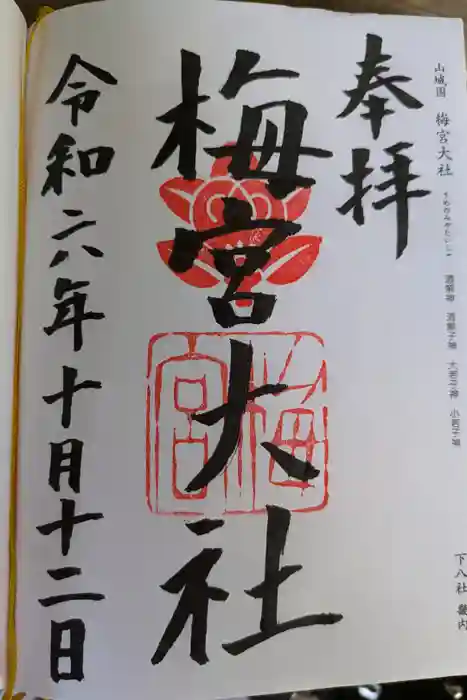 奉拝
山城国 梅宮大社
うめのみやたいしゃ
酒解神 酒解子神 大若子神 小若子神
下八社 畿内
梅宮大社
梅宮
令和六年十月十二日